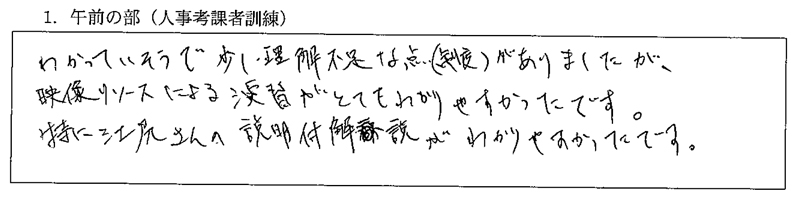 1. 午前の部（人事考課者訓練）
わかっていそうで少し理解不足な点(制度)がありましたが、
映像リソースによる演習がとてもわかりやすかったです。
特に さんの説明付解説がわかりやすかったです。